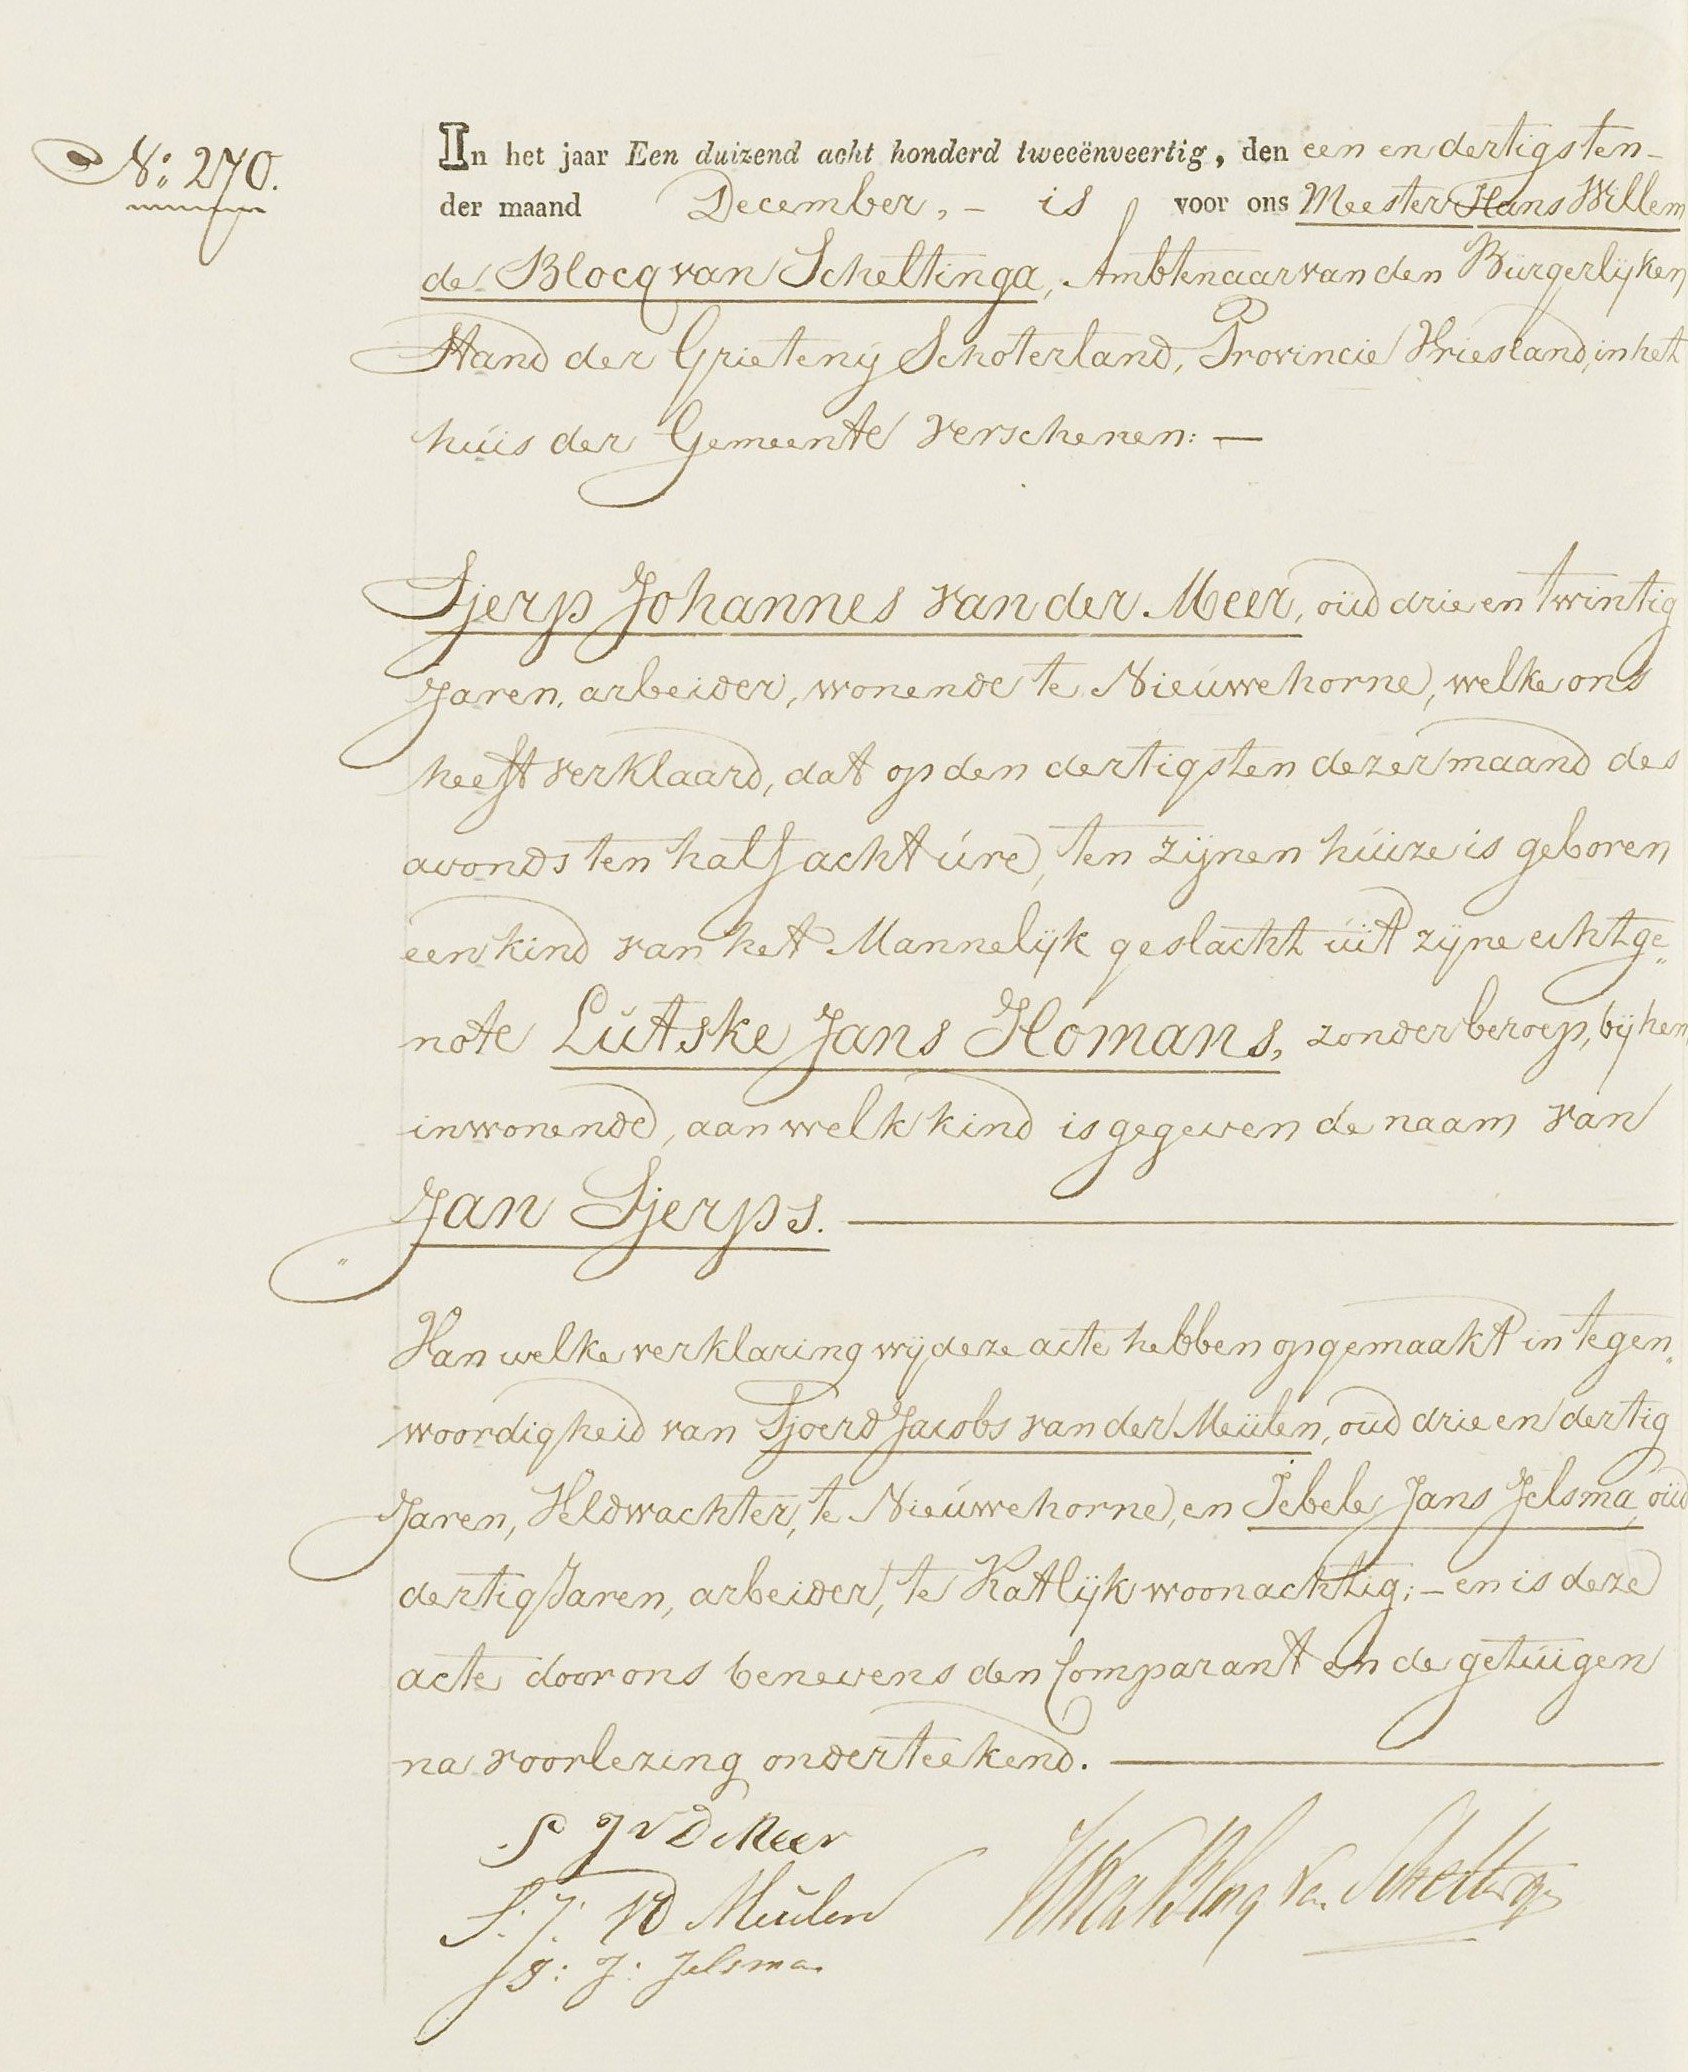 N: 270.
In het jaar Een duizend acht honderd tweeënveertig, den een en dertigsten -
der maand December, - is voor ons Meester Hans Willem
de Blocq van Scheltinga, Ambtenaar van den Burgerlijken
Stand der Grietenij Schoterland, Provincie Vriesland, in het
huis der Gemeente verschenen: —
Sjerp Johannes van der Meer, oud drie en twintig
Jaren, arbeider, wonende te Nieuwehorne, welke ons
heeft verklaard, dat op den dertigsten dezer maand des
avonds ten half acht ure, ten zijnen huize is geboren
een kind van het Mannelijk geslacht uit zijne echtge„
note Lutske Jans Homans, zonder beroep, bij hem
inwonende, aan welk kind is gegeven de naam van
Jan Sjerps. —
Van welke verklaring wij deze acte hebben opgemaakt in tegen„
woordigheid van Sjoerd Jacobs van der Meulen, oud drie en dertig
Jaren, Veldwachter, te Nieuwehorne, en Iebele Jans Jelsma, oud
dertig Jaren, arbeider, te Katlijk woonachtig; - en is deze
acte door ons benevens den Comparant en de getuigen
na voorlezing onderteekend. —
S J v D Meer
S. J. VD Meulen
J: J: Jelsma
HW de Blocq van Scheltinga